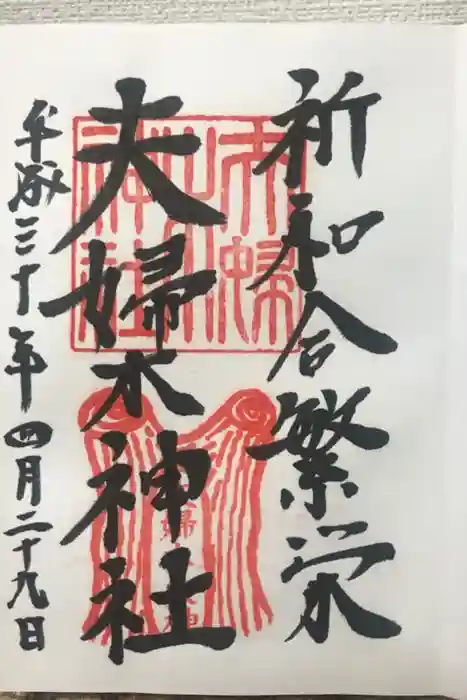 祈和合繁栄
夫婦木神社
平成三十年四月二十九日
夫婦木神社